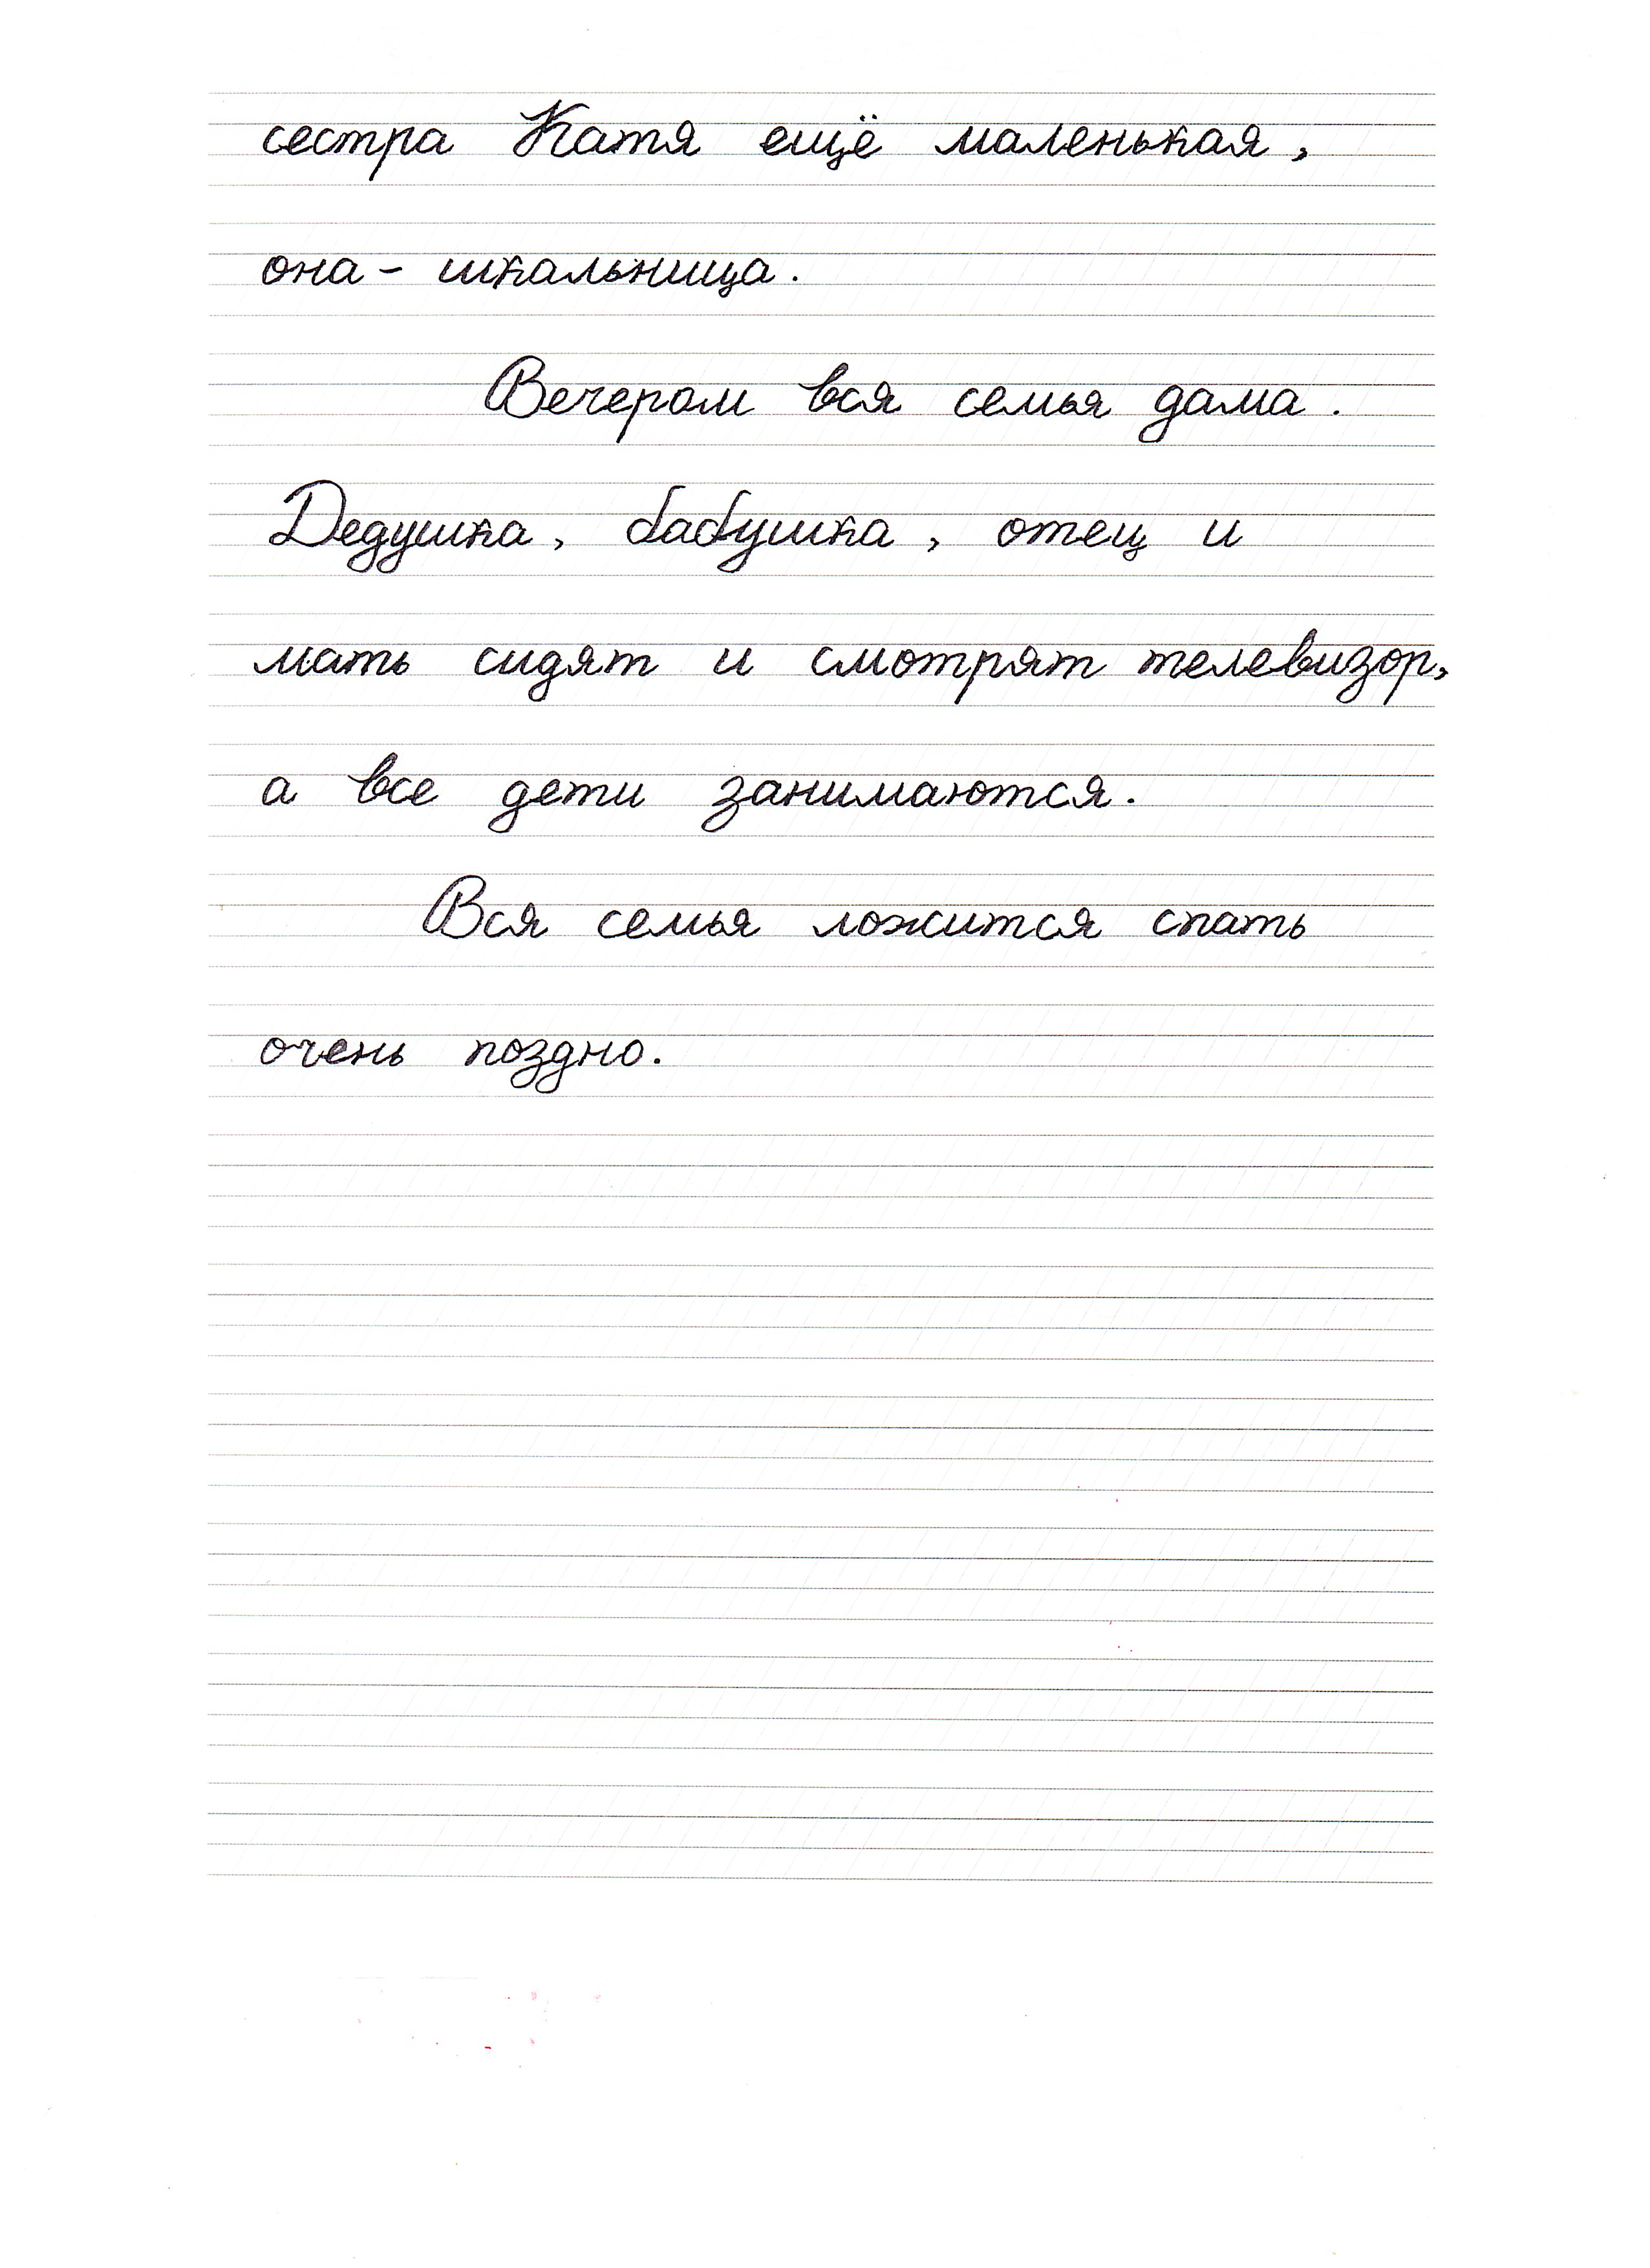 сестра Катя ещё маленькая,
она - школьница.
Вечером вся семья дома.
Дедушка, бабушка, отец и
мать сидят и смотрят телевизор,
а все дети занимаются.
Вся семья ложится спать
очень поздно.